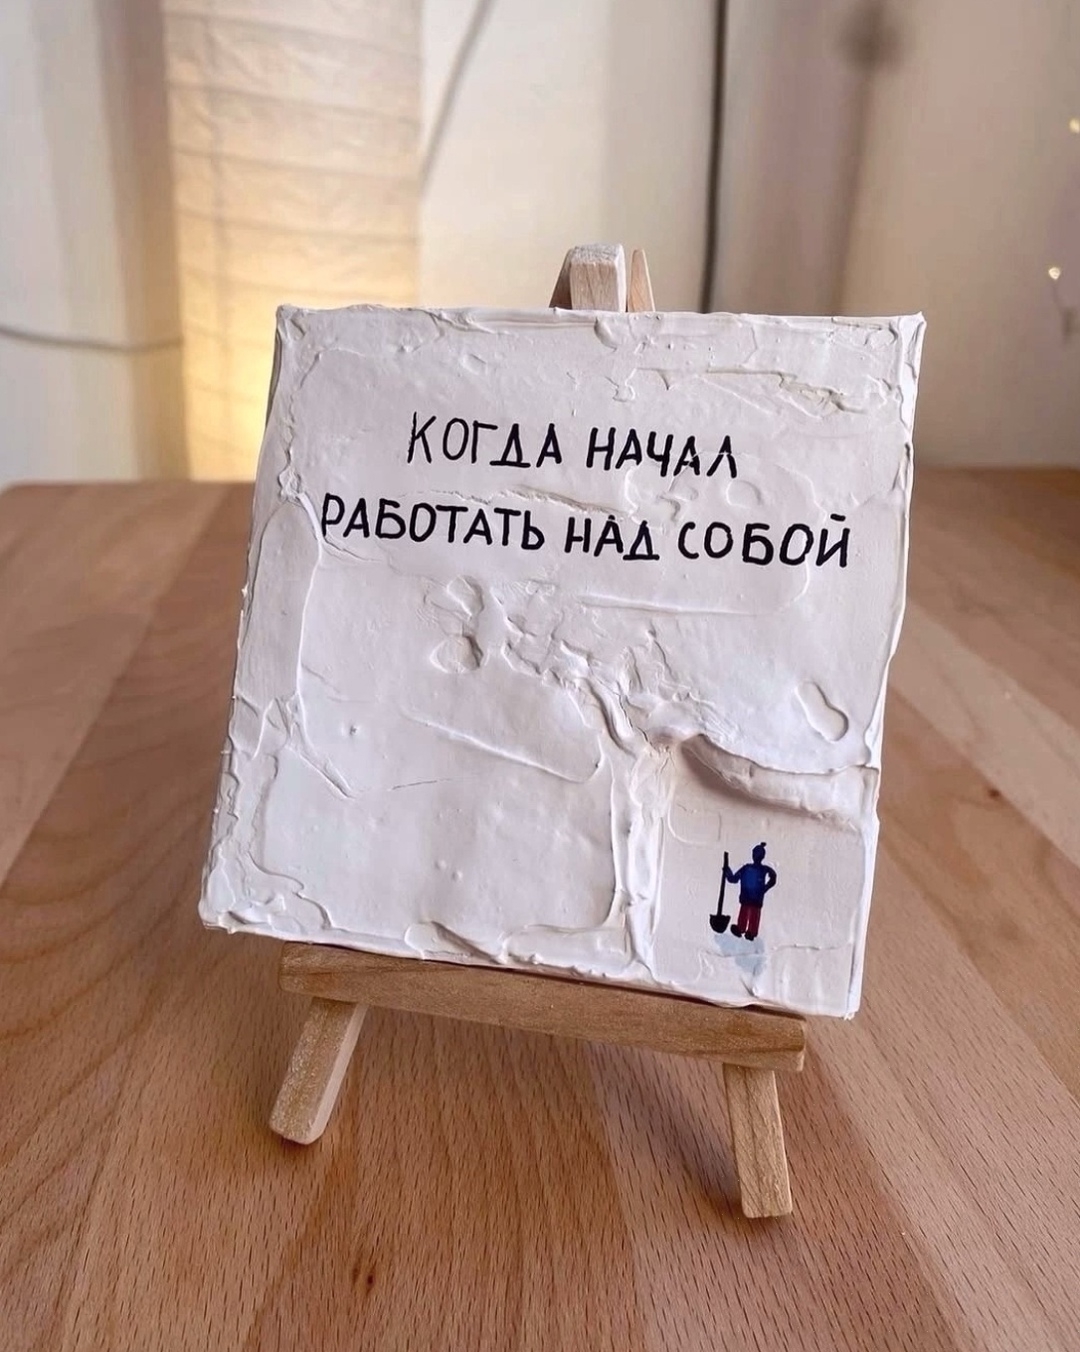 КОГДА НАЧАЛ
РАБОТАТЬ НАД СОБОЙ